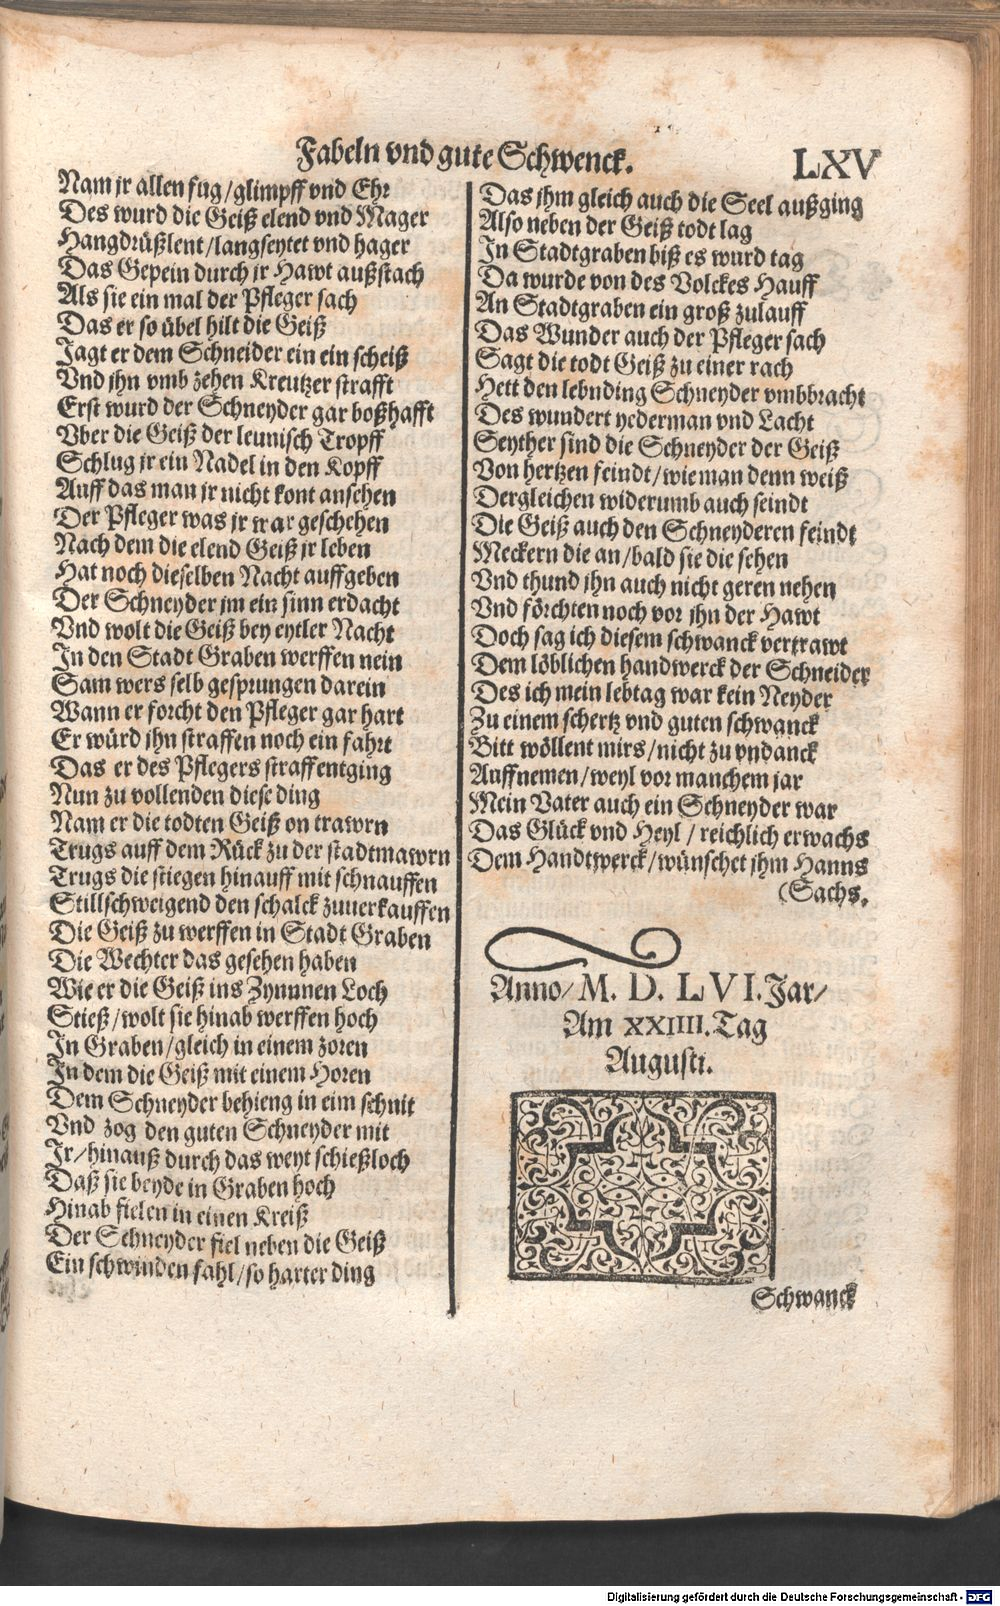 Fabeln vnd gute Schwenck.
LXV
Nam jr allen fug/glimpff vnd Ehr
Des wurd die Geiß elend vnd Mager
Hangdrüßlent/langseytet vnd hager
Das Gepein durch jr Hawt außstach
Als sie ein mal der Pfleger sach
Das er so übel hilt die Geiß
Jagt er dem Schneider ein ein scheiß
Vnd jhn vmb zehen Kreutzer strafft
Erst wurd der Schneyder gar boßhafft
Vber die Geiß der leunisch Tropff
Schlug jr ein Nadel in den Kopff
Auff das man jr nicht kont ansehen
Der Pfleger was jr war geschehen
Nach dem die elend Geiß jr leben
Hat noch dieselben Nacht auffgeben
Der Schneyder jm ein sinn erdacht
Vnd wolt die Geiß bey eytler Nacht
In den Stadt Graben werffen nein
Sam wers selb gesprungen darein
Wann er forcht den Pfleger gar hart
Er würd jhn straffen noch ein fahrt
Das er des Pflegers straff entging
Nun zu vollenden diese ding
Nam er die todten Geiß on trawrn
Trugs auff dem Rück zu der stadtmawrn
Trugs die stiegen hinauff mit schnauffen
Stillschweigend den schalck zuuerkauffen
Die Geiß zu werffen in Stadt Graben
Die Wechter das gesehen haben
Wie er die Geiß ins Zynnnen Loch
Stieß/wolt sie hinab werffen hoch
In Graben/gleich in einem zoren
In dem die Geiß mit einem Horen
Dem Schneyder behieng in eim schnit
Vnd zog den guten Schneyder mit
Jr/hinauß durch das weyt schießloch
Daß sie beyde in Graben hoch
Hinab fielen in einen Kreiß
Der Schneyder fiel neben die Geiß
Ein schwinden fahl/so harter ding
Das jhm gleich auch die Seel außging
Also neben der Geiß todt lag
In Stadtgraben biß es wurd tag
Da wurde von des Volckes Hauff
An Stadtgraben ein groß zulauff
Das Wunder auch der Pfleger sach
Sagt die todt Geiß zu einer rach
Hett den lebnding Schneyder vmbbracht
Des wundert yederman vnd Lacht
Seyther sind die Schneyder der Geiß
Von hertzen feindt/wie man denn weiß
Dergleichen widerumb auch seindt
Die Geiß auch den Schneyderen feindt
Meckern die an/bald sie die sehen
Vnd thund jhn auch nicht geren nehen
Vnd förchten noch vor jhn der Hawt
Doch sag ich diesem schwanck vertrawt
Dem löblichen handwerck der Schneider
Des ich mein lebtag war kein Neyder
Zu einem schertz vnd guten schwanck
Bitt wöllent mirs/nicht zu vndanck
Auffnemen/weyl vor manchem jar
Mein Vater auch ein Schneyder war
Das Glück vnd Heyl/reichlich erwachs
Dem Handtwerck/wünschet jhm Hanns
(Sachs.
Anno/M. D. LVI.Jar/
Am XXIIII.Tag
Augusti.
Schwanck
Digitalisierung gefördert durch die Deutsche Forschungsgemeinschaft - DFG